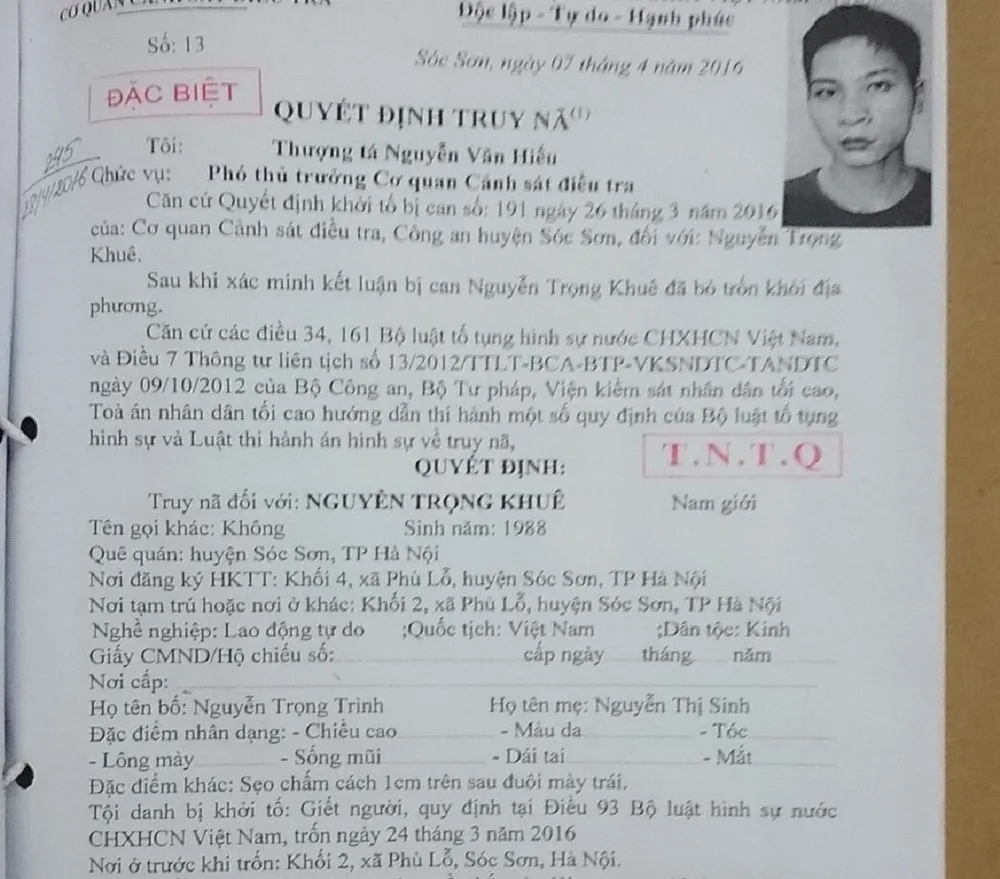 CƠ QUAN CẢNH SÁT ĐIỀU TRA
Độc lập - Tự do - Hạnh phúc
Số: 13
Sóc Sơn, ngày 07 tháng 4 năm 2016
ĐẶC BIỆT
QUYẾT ĐỊNH TRUY NÃ(1)
245
28/4/2016
Tôi: Thượng tá Nguyễn Văn Hiếu
Chức vụ: Phó thủ trưởng Cơ quan Cảnh sát điều tra
Căn cứ Quyết định khởi tố bị can số: 191 ngày 26 tháng 3 năm 2016
của: Cơ quan Cảnh sát điều tra, Công an huyện Sóc Sơn, đối với: Nguyễn Trọng
Khuê.
Sau khi xác minh kết luận bị can Nguyễn Trọng Khuê đã bỏ trốn khỏi địa
phương.
Căn cứ các điều 34, 161 Bộ luật tố tụng hình sự nước CHXHCN Việt Nam,
và Điều 7 Thông tư liên tịch số 13/2012/TTLT-BCA-BTP-VKSNDTC-TANDTC
ngày 09/10/2012 của Bộ Công an, Bộ Tư pháp, Viện kiểm sát nhân dân tối cao,
Toà án nhân dân tối cao hướng dẫn thi hành một số quy định của Bộ luật tố tụng
hình sự và Luật thi hành án hình sự về truy nã,
T.N.T.Q
QUYẾT ĐỊNH:
Truy nã đối với: NGUYỄN TRỌNG KHUÊ Nam giới
Tên gọi khác: Không Sinh năm: 1988
Quê quán: huyện Sóc Sơn, TP Hà Nội
Nơi đăng ký HKTT: Khối 4, xã Phù Lỗ, huyện Sóc Sơn, TP Hà Nội
Nơi tạm trú hoặc nơi ở khác: Khối 2, xã Phù Lỗ, huyện Sóc Sơn, TP Hà Nội
Nghề nghiệp: Lao động tự do ;Quốc tịch: Việt Nam ;Dân tộc: Kinh
Giấy CMND/Hộ chiếu số: cấp ngày tháng năm
Nơi cấp:
Họ tên bố: Nguyễn Trọng Trình Họ tên mẹ: Nguyễn Thị Sinh
Đặc điểm nhân dạng: - Chiều cao - Màu da - Tóc
- Lông mày - Sống mũi - Dái tai - Mắt
Đặc điểm khác: Sẹo chấm cách 1cm trên sau đuôi mày trái.
Tội danh bị khởi tố: Giết người, quy định tại Điều 93 Bộ luật hình sự nước
CHXHCN Việt Nam, trốn ngày 24 tháng 3 năm 2016
Nơi ở trước khi trốn: Khối 2, xã Phù Lỗ, Sóc Sơn, Hà Nội.